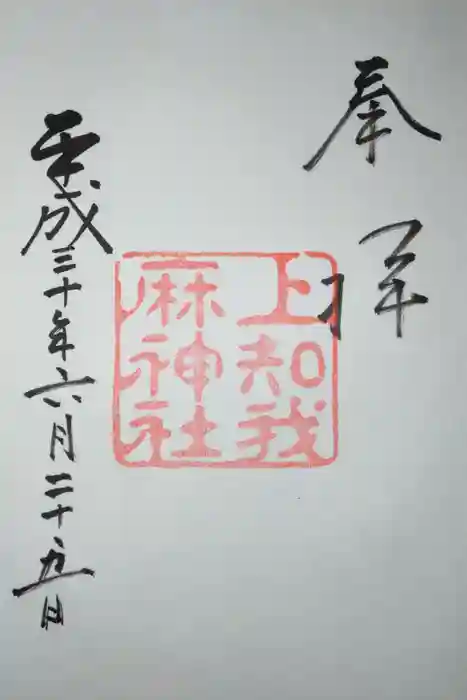 奉拝
上知我
麻神社
平成三十年六月二十九日